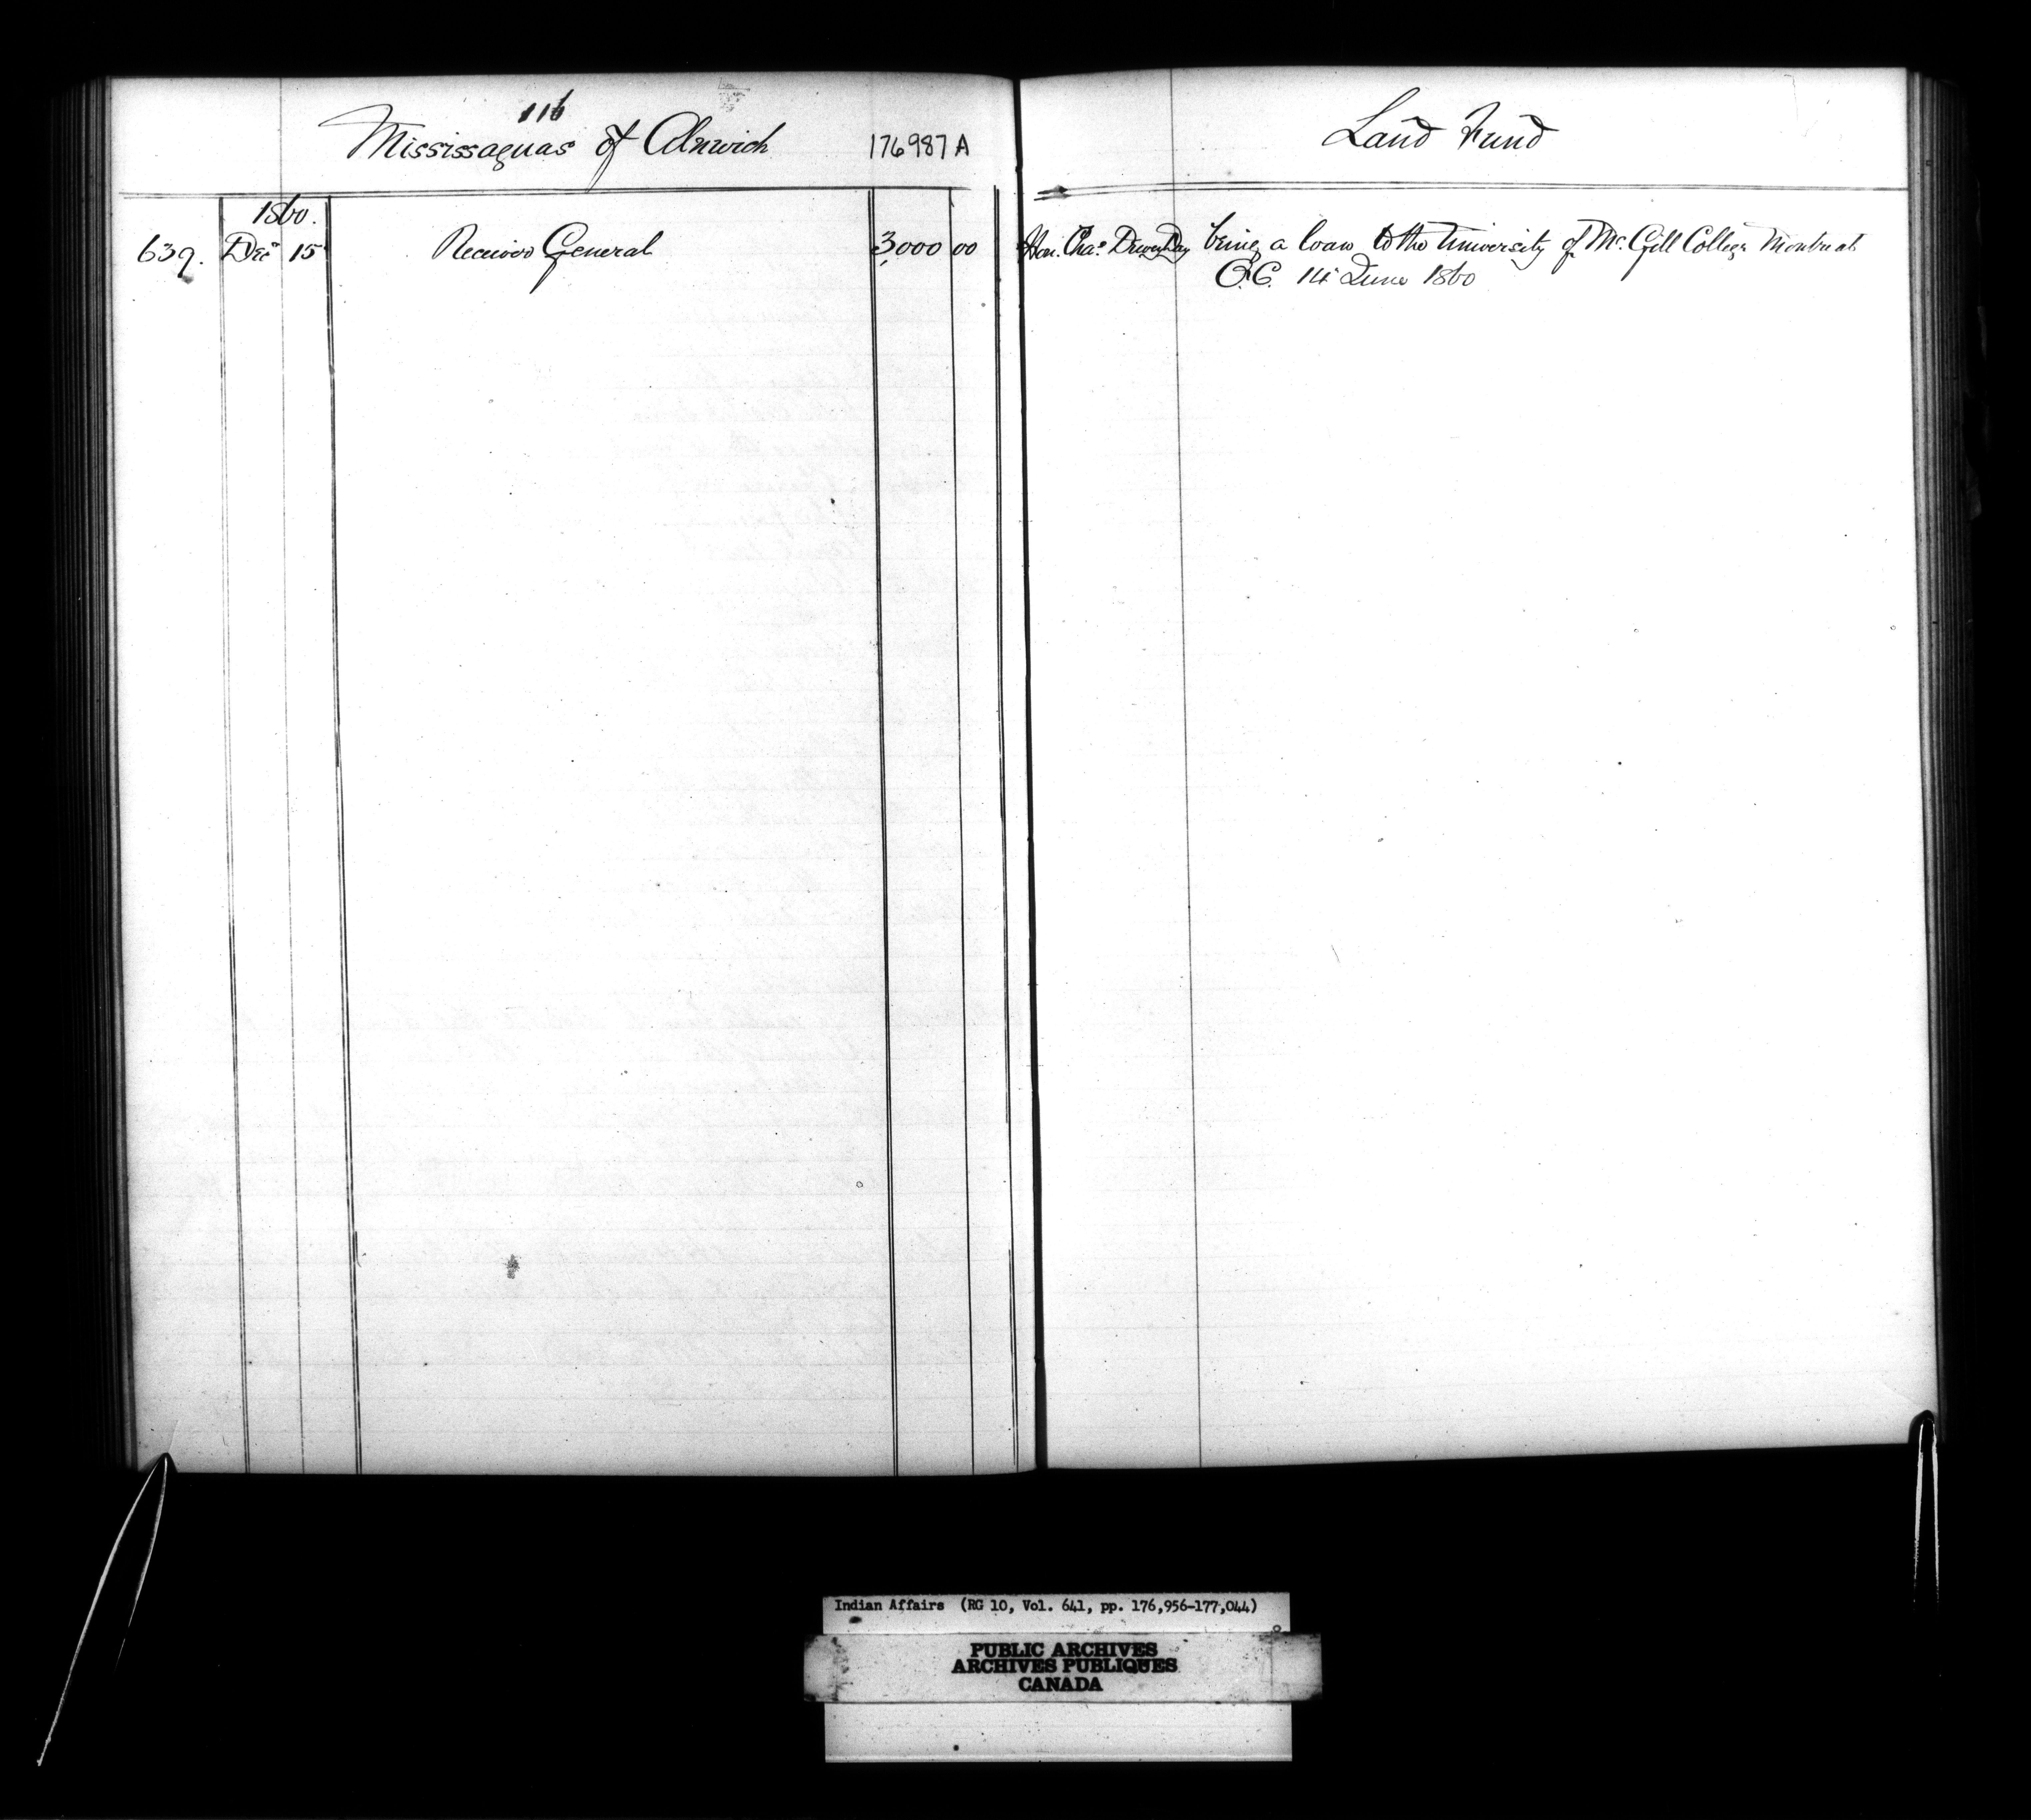 116
Mississaguas of Alnwick 176987A Land Fund
1860.
639. Decr 15 Receiver General 3,000 00 Hon. Chas. Dewey Day being a loan to the University of Mc.Gill College Montreal
O.C. 14 June 1860
Indian Affairs (RG 10, Vol. 641, pp. 176,956-177,044)
PUBLIC ARCHIVES
ARCHIVES PUBLIQUES
CANADA